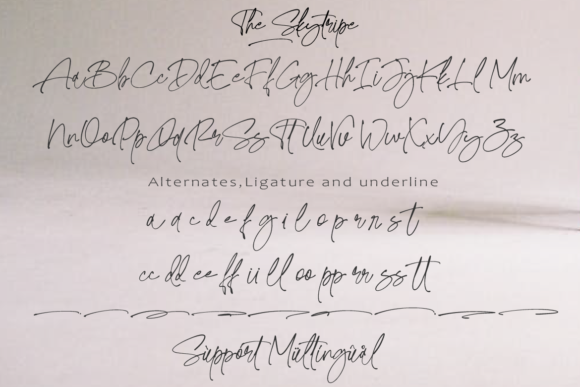 The Skytripe
Aa Bb Cc Dd Ee Ff Gg Hh Ii Jj Kk Ll Mm
Nn Oo Pp Qq Rr Ss Tt Uu Vv Ww Xx Yy Zz
Alternates,Ligature and underline
a a c d e f g i l o p r n s t
cc dd ee ff ii ll oo pp rr ss tt
Support Multingual